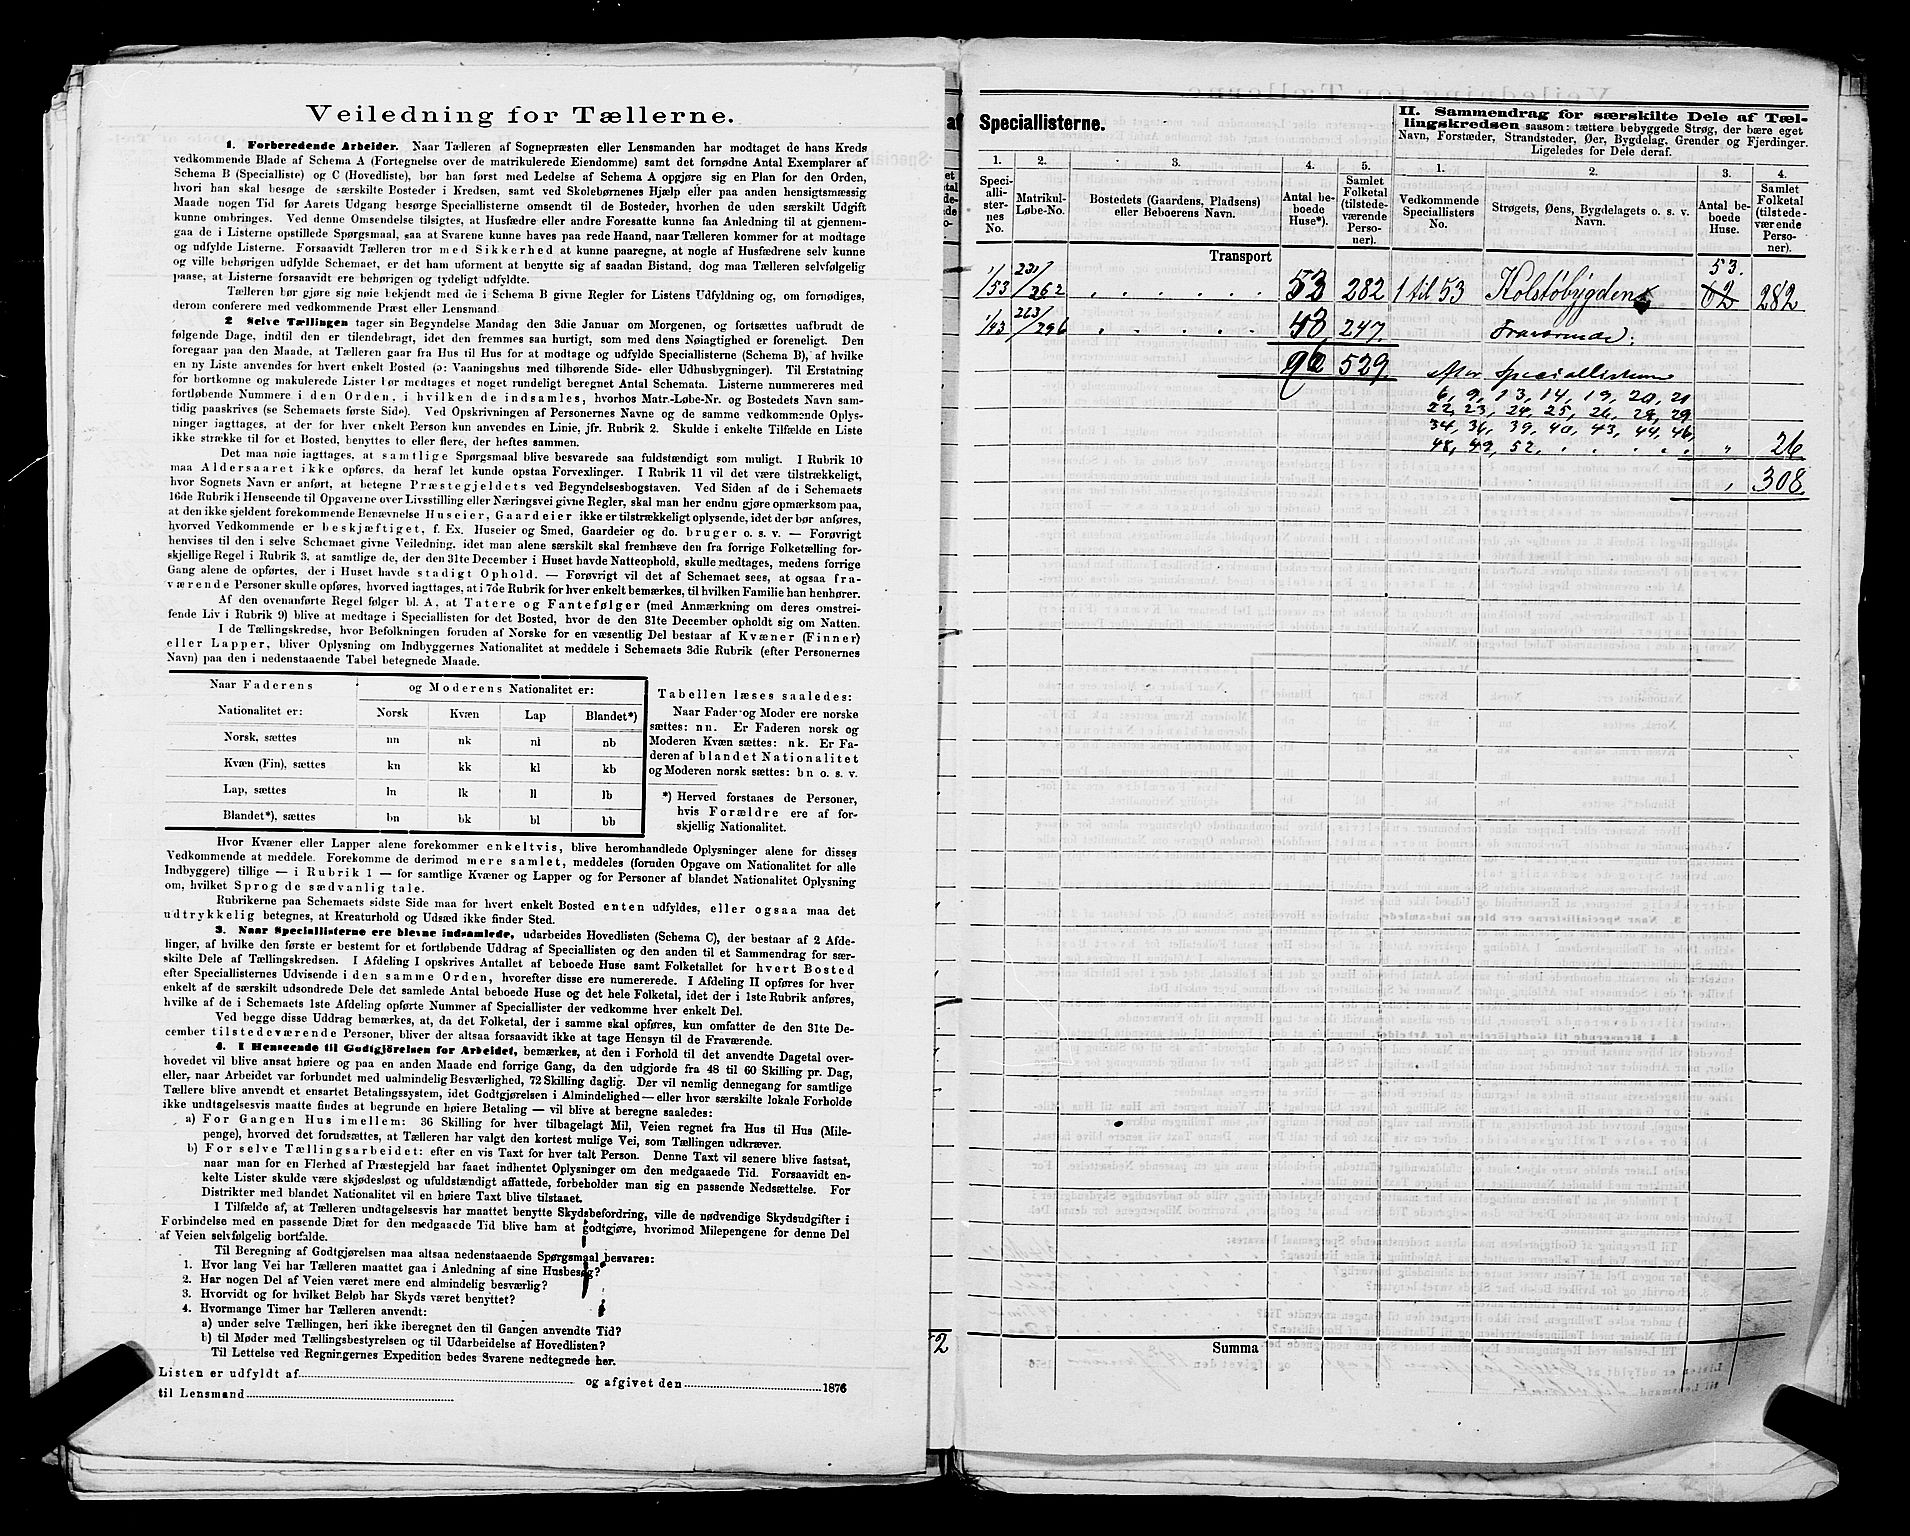 Veiledning for Tællerne.
1. Forberedende Arbeider. Naar Tælleren af Sognepræsten eller Lensmanden har modtaget de hans Kreds
vedkommende Blade af Schema A (Fortegnelse over de matrikulerede Eiendomme) samt det fornødne Antal Exemplarer af
Schema B (Specialliste) og C (Hovedliste), bør han først med Ledelse af Schema A opgjøre sig en Plan for den Orden,
hvori han skal besøge de særskilte Bosteder i Kredsen, samt ved Skolebørnenes Hjælp eller paa anden hensigtsmæssig
Maade nogen Tid før Aarets Udgang besørge Speciallisterne omsendt til de Bosteder, hvorhen de uden særskilt Udgift
kunne ombringes. Ved denne Omsendelse tilsigtes, at Husfædre eller andre Foresatte kunne faa Anledning til at gjennem-
gaa de i Listerne opstillede Spørgsmaal, saa at Svarene kunne haves paa rede Haand, naar Tælleren kommer for at modtage
og udfylde Listerne. Forsaavidt Tælleren tror med Sikkerhed at kunne paaregne, at nogle af Husfædrene selv kunne
og ville behørigen udfylde Schemaet, er det ham uforment at benytte sig af saadan Bistand, dog maa Tælleren selvfølgelig
paase, at Listerne forsaavidt ere behørigen og tydeligt udfyldte.
Tælleren bør gjøre sig nøie bekjendt med de i Schema B givne Regler for Listens Udfyldning og, om fornødiges,
derom conferere med vedkommende Præst eller Lensmand.
2 Selve Tællingen tager sin Begyndelse Mandag den 3die Januar om Morgenen, og fortsættes uafbrudt de
følgende Dage, indtil den er tilendebragt, idet den fremmes saa hurtigt, som med dens Nøiagtighed er foreneligt. Den
foregaar paa den Maade, at Tælleren gaar fra Hus til Hus for at modtage og udfylde Speciallisterne (Schema B), af hvilke
en ny Liste anvendes for hvert enkelt Bosted (ɔ: Vaaningshus med tilhørende Side- eller Udhusbygninger). Til Erstatning
for bortkomne og makulerede Lister før medtages et noget rundeligt beregnet Antal Schemata. Listerne nummereres med
fortløbende Nummere i den Orden, i hvilken de indsamles, hvorhos Matr.-Løbe-Nr. og Bostedets Navn sam-
tidig paaskrives (se Schemaets første Side). Ved Opskrivningen af Personernes Navne og de samme vedkommende Oplys-
ninger iagttages, at der for hver enkelt Person kun anvendes en Linie, jfr. Rubrik 2. Skulde i enkelte Tilfælde en Liste
ikke strække til for et Bosted, benyttes to eller flere, der heftes sammen.
Det maa nøie iagttages, at samtlige Spørgsmaal blive besvarede saa fuldstændigt som muligt. I Rubrik 10
maa Aldersaaret ikke opføres, da heraf let kunde opstaa Forvexlinger. I Rubrik 11 vil det være tilstrækkeligt,
hvor Sognets Navn er anført, at betegne Præstegjeldets ved Begyndelsesbogstaven. Ved Siden af de i Schemaets
16de Rubrik i Henseende til Opgaverne over Livsstilling eller Næringsvei givne Regler, skal man her endnu gjøre opmærksom paa,
at den ikke sjeldent forekommende Benævnelse Huseier, Gaardeier ikke er tilstrækkeligt oplysende, idet der bør anføres,
hvorved Vedkommende er beskjæftiget, f. Ex. Huseier og Smed, Gaardeier og do. bruger o. s. v. — Forøvrigt
henvises til den i selve Schemaet givne Veiledning, idet man alene særskilt skal fremhæve den fra forrige Folketælling for-
skjellige Regel i Rubrik 3, at samtlige de, der den 31te December i Huset havde Natteophold, skulle medtages, medens forrige
Gang alene de opførtes, der i Huset havde stadigt Ophold. — Forøvrigt vil det af Schemaet sees, at ogsaa fra-
værende Personer skulle opføres, hvorved iagttages, at i 7de Rubrik for hver enkelt bemærkes, til hvilken Familie han henhører.
Af den ovenanførte Regel følger bl. A. at Tatere og Fantefølger (med Anmærkning om deres omstrei-
fende Liv i Rubrik 9) blive at medtage i Speciallisten for det Bosted, hvor de den 31te December opholdt sig om Natten.
I de Tællingskredse, hvor Befolkningen foruden af Norske for en væsentlig Del bestaar af Kvæner (Finner)
eller Lapper, bliver Oplysning om Indbyggernes Nationalitet at meddele i Schemaets 3die Rubrik (efter Personernes
Navn) paa den i nedenstaaende Tabel betegnede Maade.
Naar Faderens og Moderens Nationalitet er:
Nationalitet er: Norsk Kvæn Lap Blandet*)
Norsk, sættes nn nk nl nb
Kvæn (Fin), sættes kn kk kl kb
Lap, sættes ln lk ll lb
Blandet*), sættes bn bk bl bb
Tabellen læses saaledes:
Naar Fader og Moder ere norske
sættes: nn. Er Faderen norsk og
Moderen Kvæn sættes: nk. Er Fa-
deren af blandet Nationalitet
og Moderen norsk sættes: bn o. s. v.
*) Herved forstanes de Personer,
hvis Forældre ere af for-
skjellig Nationalitet.
Hvor Kvæner eller Lapper alene forekommer enkeltvis, blive heromhandlede Oplysninger alene for disses
Vedkommende at meddele. Forekomme de derimod mere samlet, meddeles (foruden Opgave om Nationalitet for alle
Indbyggere) tillige — i Rubrik 1 — for samtlige Kvæner og Lapper og for Personer af blandet Nationalitet Oplysning
om, hvilket Sprog de sædvanlig tale.
Rubrikerne paa Schemaets sidste Side maa for hvert enkelt Bosted enten udfyldes, eller ogsaa maa det
udtrykkelig betegnes, at Kreaturhold og Udsæd ikke finder Sted.
3. Naar Speciallisterne ere blevne indsamlede, udarbeides Hovedlisten (Schema C), der bestaar af 2 Afde-
linger, af hvilke den første er bestemt for et fortløbende Uddrag af Speciallisten og den anden til et Sammendrag for sær-
skilte Dele af Tællingskredsen. I Afdeling I opskrives Antallet af beboede Huse samt Folketallet for hvert Bosted
efter Speciallisternes Udvisende i den samme Orden, hvorefter disse ere numererede. I Afdeling II opføres for hver
enkelt af de særskilt udsondrede Dele det samlede Antal beboede Huse og det hele Folketal, idet der i 1ste Rubrik anføres,
hvilke af de i Schemaets 1ste Afdeling opførte Nummer af Speciallister der vedkomme hver enkelt Del.
Ved begge disse Uddrag bemærkes, at, da det Folketal, der i samme skal opføres, kun omfatter de den 31te De-
cember tilstedeværende Personer, bliver der altsaa forsaavidt ikke at tage Hensyn til de Fraværende.
4. I Henseende til Godtgjörelsen for Arbeidet, bemærkes, at den i Forhold til det anvendte Dagetal over-
hovedet vil blive ansat høiere og paa en anden Maade end forrige Gang, da den udgjorde fra 48 til 60 Skilling pr. Dag,
eller, naar Arbeidet var forbundet med ualmindelig Besværlighed, 72 Skilling daglig. Der vil nemlig dennegang for samtlige
Tællere blive anvendt et ensartet Betalingssystem, idet Godtgjørelsen i Almindelighed — eller hvor særskilte lokale Forholde
ikke undtagelsesvis maatte findes at begrunde en høiere Betaling — vil blive at beregne saaledes:
a) For Gangen Hus imellem: 36 Skilling for hver tilbagelagt Mil, Veien regnet fra Hus til Hus (Mile-
penge), hvorved det forudsættes, at Tælleren har valgt den kortest mulige Vei, som Tællingen udkræver.
b) For selve Tællingsarbeidet: efter en vis Taxt for hver talt Person. Denne Taxt vil senere blive fastsat,
naar man for en Flerhed af Præstegjeld har faaet indhentet Oplysninger om den medgaaede Tid. Forsaavidt en-
kelte Lister skulde være skjødesløst og ufuldstændigt affattede, forbeholder man sig en passende Nedsættelse. For
Distrikter med blandet Nationalitet vil en høiere Taxt blive tilstaaet.
I Tilfælde af, at Tælleren undtagelsesvis har maattet benytte Skydsbefordring, ville de nødvendige Skydsudgifter i
Forbindelse med en passende Diæt for den medgaaede Tid blive ham at godtgjøre, hvorimod Milepengene for denne Del
af Veien selvfølgelig bortfalde.
Til Beregning af Godtgjørelsen maa altsaa nedenstaaende Spørgsmaal besvares:
1. Hvor lang Vei har Tælleren maattet gaa i Anledning af sine Husbesøg?
2. Har nogen Del af Veien været mere end almindelig besværlig?
3. Hvorvidt og for hvilket Beløb har Skyds været benyttet?
4. Hvormange Timer har Tælleren anvendt:
a) under selve Tællingen, heri ikke iberegnet den til Gangen anvendte Tid?
b) til Møder med Tællingsbestyrelsen og til Udarbeidelse af Hovedlisten?
Til Lettelse ved Regningernes Expedition bedes Svarene nedtegnede her.
Listen er udfyldt af og afgivet den 1876
til Lensmand
af Speciallisterne.
1. 2. 3. 4. 5.
Speci-
allis-
ternes
No.
Matrikul-
Løbe-No.
Bostedets (Gaardens, Pladsens)
eller Beboerens Navn.
Antal be-
boede
Huse*).
Samlet
Folketal
(tilstede-
værende
Perso-
ner).
Transport
1/53 230/262 53 282
1/43 263/296 43 247.
96 529
Summa
II. Sammendrag for særskilte Dele af Tæl-
lingskredsen sausom: tættere bebyggede Strøg, der bære eget
Navn, Forstæder, Strandsteder, Øer, Bygdelag, Grender og Fjerdinger.
Ligeledes for Dele deraf.
1. 2. 3. 4.
Vedkommende
Speciallisters
No.
Strøgets, Øens, Bygdelagets o. s. v.
Navn.
Antal be-
boede
Huse.
Samlet
Folketal
(tilstede-
værende
Perso-
ner).
53.
1 til 53 Kolstøbygden 62 282
Fraværende:
efter Speciallisterne
6, 9, 13, 14, 19, 20, 21
22, 23, 24, 25, 26, 28, 29
34, 36, 39, 40, 43, 44, 46,
48, 49, 52, . . . . . " 26
" 308.
52